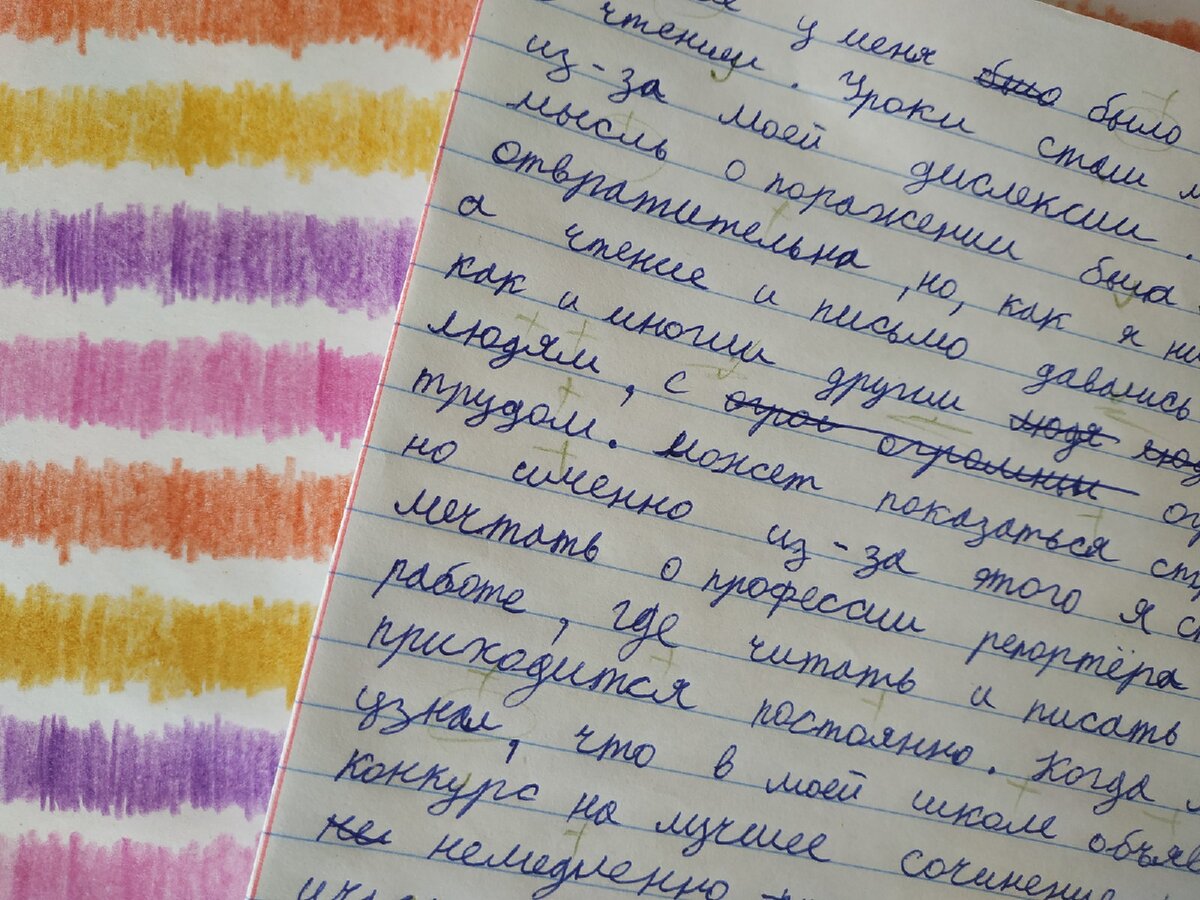 у меня было было
чтении. Уроки стали
из-за моей дислексии.
мысль о поражении была
отвратительна, но, как я
а чтение и письмо давались
как и многим другим людя
людям, с огро огромны
трудом. Может показаться
но именно из-за этого я
мечтать о профессии репортёра
работе, где читать и писать
приходится постоянно. Когда
узнал, что в моей школе
конкурс на лучшее сочинение
немедленно